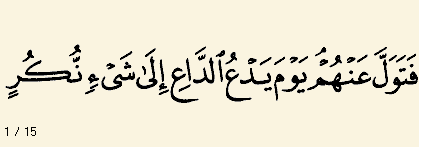 فَتَوَلَّ عَنْهُمْ ۘ يَوْمَ يَدْعُ ٱلدَّاعِ إِلَىٰ شَىْءٍ نُّكُرٍ
1 / 15